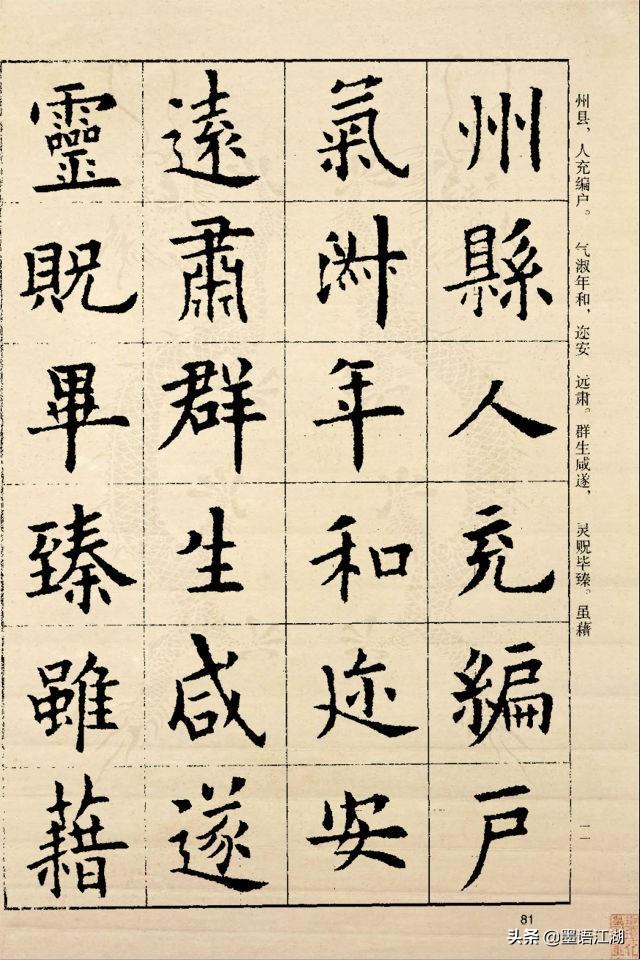 州縣人充編戶
氣淑年和迩安
遠肅群生咸遂
靈貺畢臻雖藉
州县，人充编户。 气淑年和，迩安 远肃。群生咸遂， 灵贶毕臻。虽藉
一一
81
头条 @墨语江湖